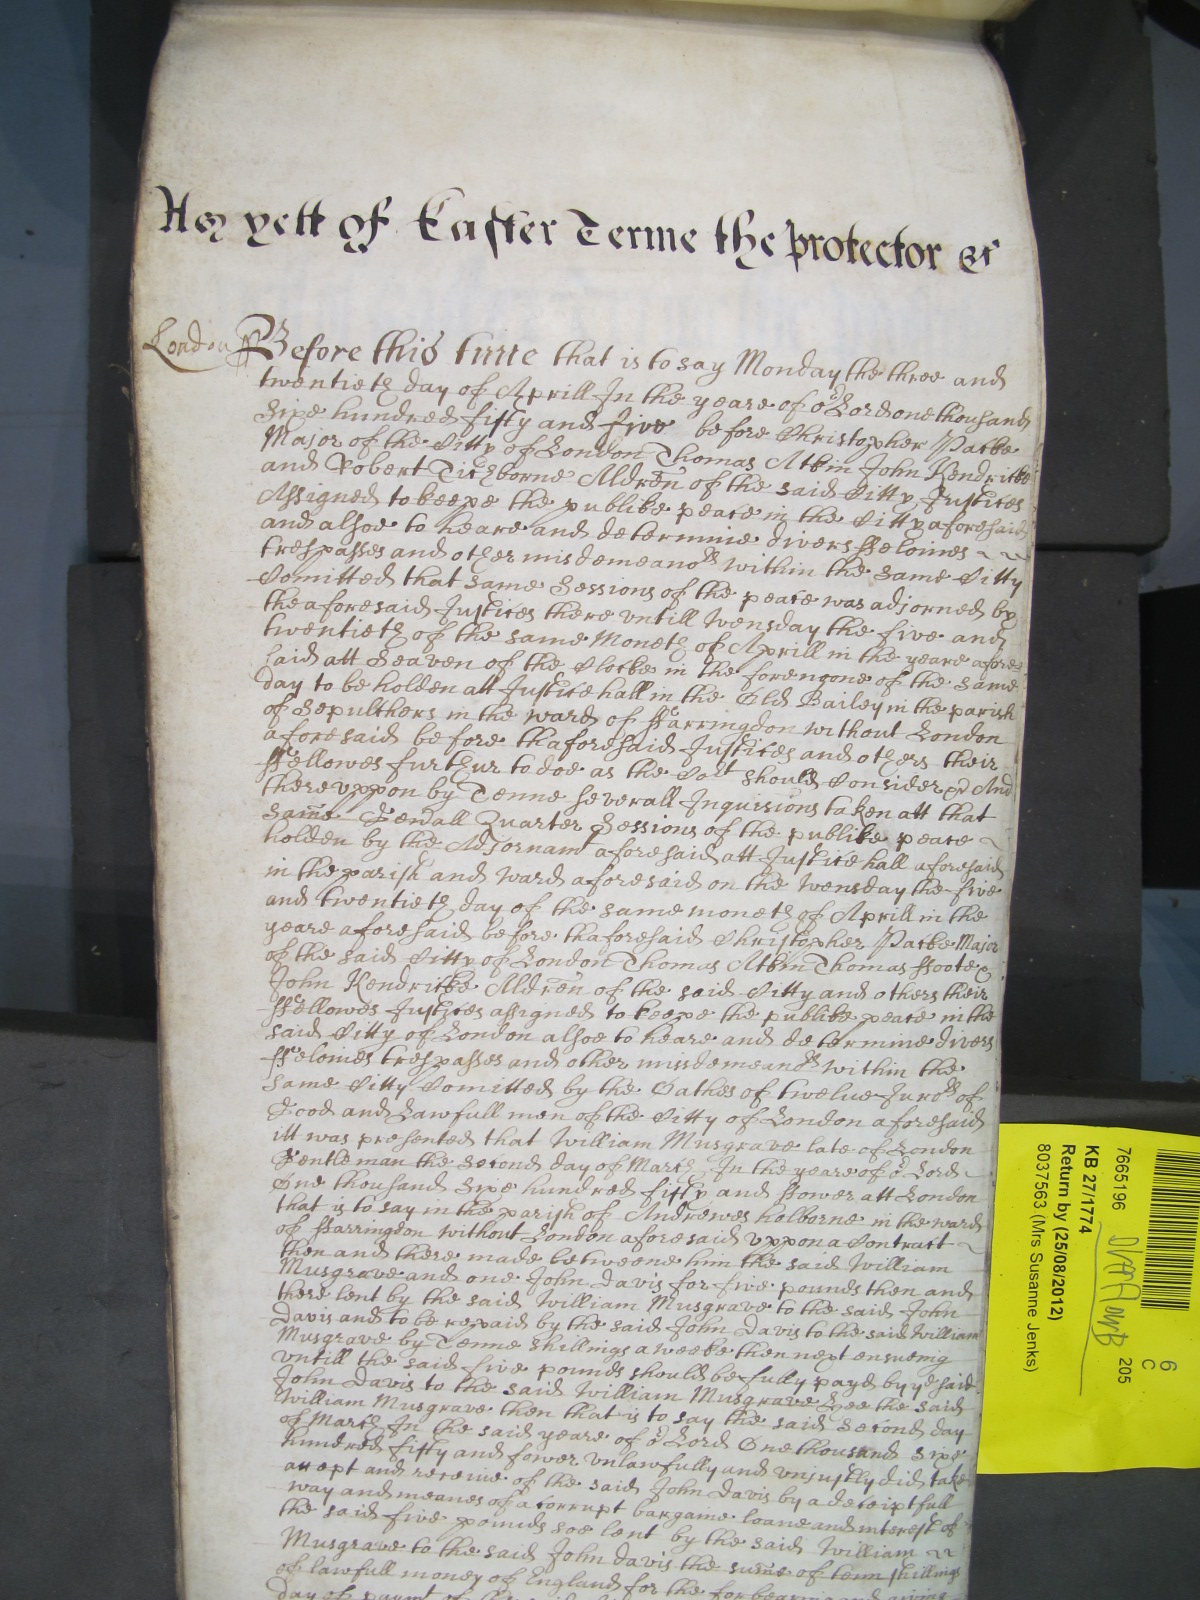 yett of Easter Terme the Protector &c
London ss Before this time that is to say Monday the three and
twentieth day of Aprill In the yeare of or Lord one thousand
Sixe hundred fifty and five before Christopher Packe
Major of the Citty of London Thomas Atkin John Kendricke
and Robert Tichborne Aldren of the said Citty Justices
Assigned to keepe the publike peace in the Citty aforesaid
and alsoe to heare and determine divers ffelonies
trespasses and other misdemeanors within the same Citty
Comitted that same Sessions of the peace was adjorned by
the aforesaid Justices there vntill Wensday the five and
twentieth of the same Moneth of Aprill in the yeare afore
said att Seaven of the Clocke in the forenoone of the same
day to be holden att Justice hall in the Old Bailey in the parish
of Sepulchers in the ward of ffarringdon without London
aforesaid before thaforesaid Justices and others their
ffellowes further to doe as the Cort should Consider &c And
therevppon by Tenne severall Inquisicions taken att that
same Gen'all Quarter Sessions of the publike peace
holden by the Adjornamt aforesaid att Justice hall aforesaid
in the parish and ward aforesaid on the Wensday the five
and twentieth day of the same moneth of Aprill in the
yeare aforesaid before thaforesaid Christopher Packe Major
of the said Citty of London Thomas Atkin Thomas ffoote
John Kendricke Aldren of the said Citty and others their
ffellowes Justices assigned to keepe the publike peace in the
said Citty of London alsoe to heare and determine divers
ffelonies trespasses and other misdemeanors within the
same Citty Comitted by the Oathes of twelue Jurors of
Good and Lawfull men of the Citty of London aforesaid
itt was presented that William Musgrave late of London
Gentleman the Second day of March In the yeare of or Lord
One thousand Sixe hundred fifty and ffower att London
that is to say in the parish of Andrewes holborne in the ward
of ffarringdon without London aforesaid vppon a Contract
then and there made betweene him the said William
Musgrave and one John Davis for five pounds then and
there lent by the said William Musgrave to the said John
Davis and to be repaid by the said John Davis to the said William
Musgrave by Tenne shillings a weeke then next ensueing
vntill the said five pounds should be fully payd by ye said
John Davis to the said William Musgrave Hee the said
William Musgrave then that is to say the said Second day
of March In the said yeare of or Lord One thousand Sixe
hundred fifty and fower vnlawfully and vnjustly did take
accept and receive of the said John Davis by a deceiptfull
way and meanes of a corrupt bargaine loane and interest of
the said five pounds soe lent by the said William
Musgrave to the said John Davis the sume of tenn shillings
of lawfull money of England for the forbearing and giving
day of paymt of the said
7665196
KB 27/1774
Return by (25/08/2012)
8037563 (Mrs Susanne Jenks)
205
6
C